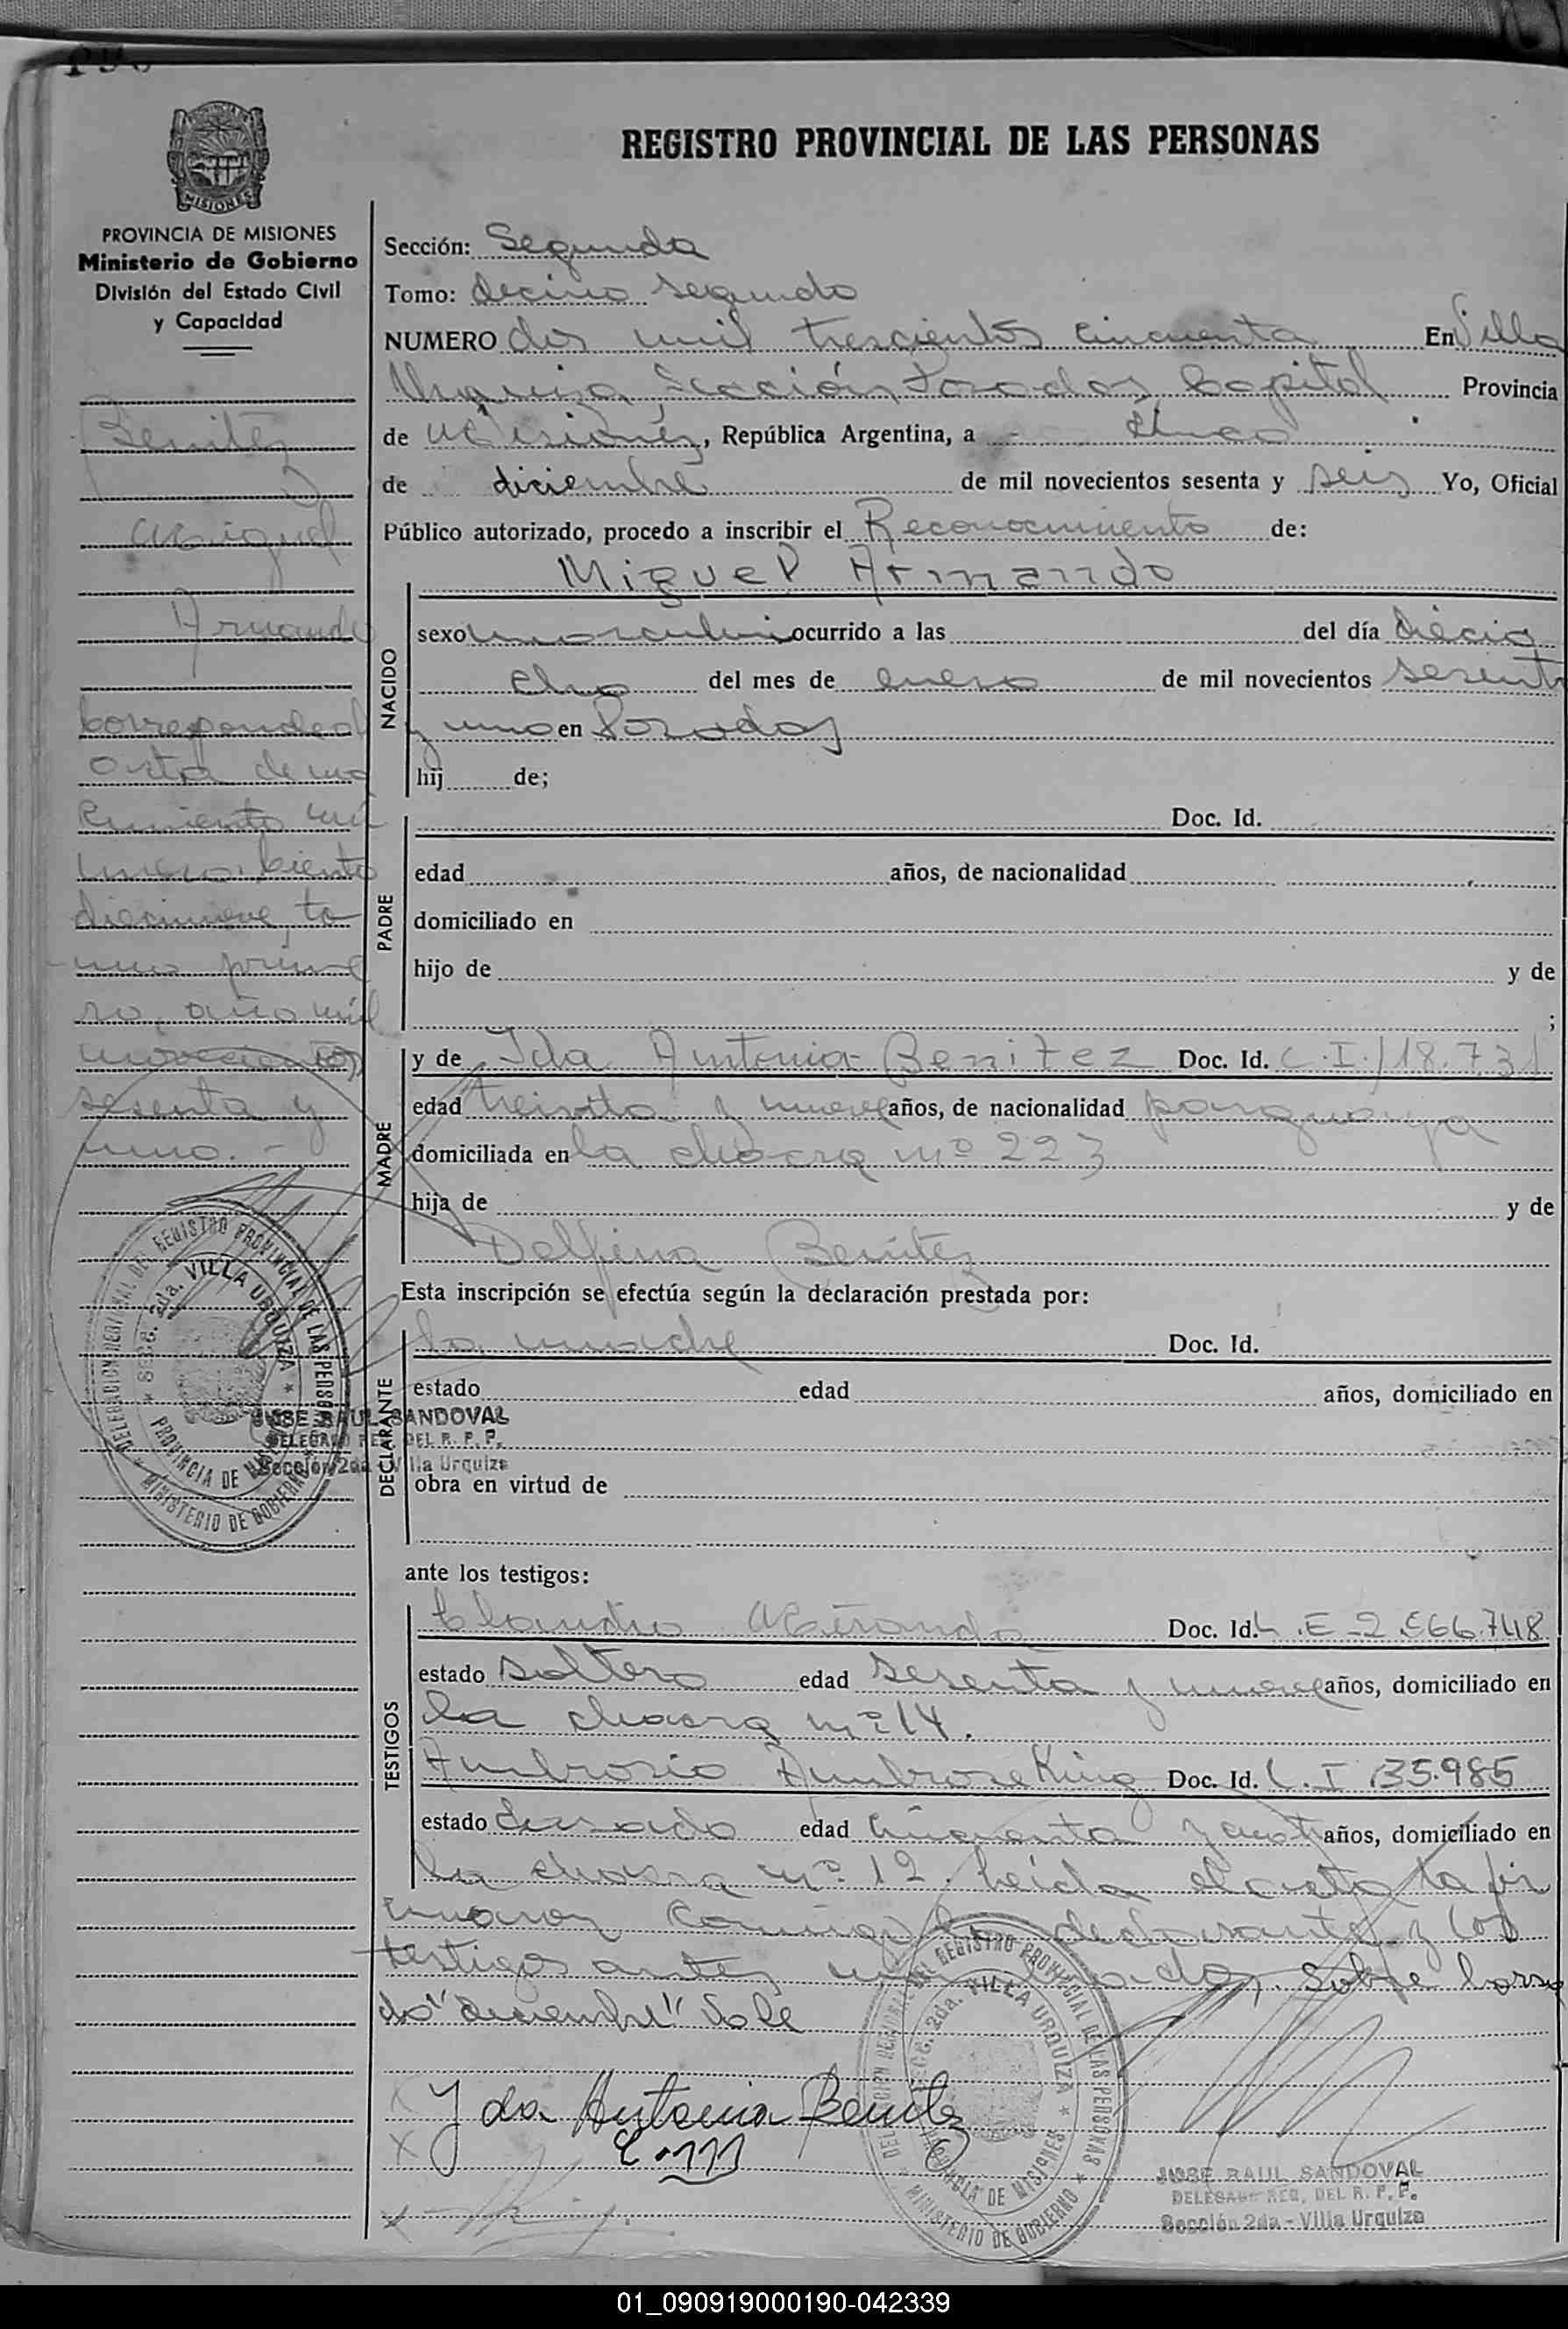 REGISTRO PROVINCIAL DE LAS PERSONAS
MISIONES
PROVINCIA DE MISIONES
Ministerio de Gobierno
División del Estado Civil
y Capacidad
Benitez
Miguel
Armando
Corresponde al
acta de na
cimiento nú
mero ciento
diecinueve to
mo prime
ro, año mil
novecientos
sesenta y
uno. -
Sección: Segunda
Tomo: decimo segundo
NUMERO dos mil trescientos cincuenta En Villa
Urquiza Sección Posadas, Capital Provincia
de Misiones, República Argentina, a cinco
de diciembre de mil novecientos sesenta y seis Yo, Oficial
Público autorizado, procedo a inscribir el Reconocimiento de:
NACIDO
Miguel Armando
sexo masculino ocurrido a las del día diecio
cho del mes de enero de mil novecientos sesenta
y uno en Posadas
hij de;
PADRE
Doc. Id.
edad años, de nacionalidad
domiciliado en
hijo de y de
;
MADRE
y de Ida Antonia Benitez Doc. Id. C.I. 118.731
edad treinta y nueve años, de nacionalidad paraguaya
domiciliada en la chacra nº 223
hija de y de
Delfina Benitez
Esta inscripción se efectúa según la declaración prestada por:
DECLARANTE
la madre Doc. Id.
estado edad años, domiciliado en
obra en virtud de
ante los testigos:
TESTIGOS
Claudio Miranda Doc. Id. L.E-2.566.748
estado soltero edad sesenta y nueve años, domiciliado en
la chacra nº 14.
Ambrosio Ambrose King Doc. Id. C.I 135.985
estado casado edad cincuenta y años, domiciliado en
la chacra nº 12. Leída el acta la fir
maron conmigo la declarante y los
testigos antes Sobre borra
do "diciembre" Vale
Ida Antonia Benitez
DELEGACION REGIONAL DEL REGISTRO PROVINCIAL DE LAS PERSONAS
Secc. 2da. VILLA URQUIZA
PROVINCIA DE MISIONES
MINISTERIO DE GOBIERNO
JOSE RAUL SANDOVAL
DELEGADO REG. DEL R. P. P.
Sección 2da - Villa Urquiza
DELEGACION REGIONAL DEL REGISTRO PROVINCIAL DE LAS PERSONAS
Secc. 2da. VILLA URQUIZA
PROVINCIA DE MISIONES
MINISTERIO DE GOBIERNO
JOSE RAUL SANDOVAL
DELEGADO REG. DEL R. P. P.
Sección 2da - Villa Urquiza
01_090919000190-042339